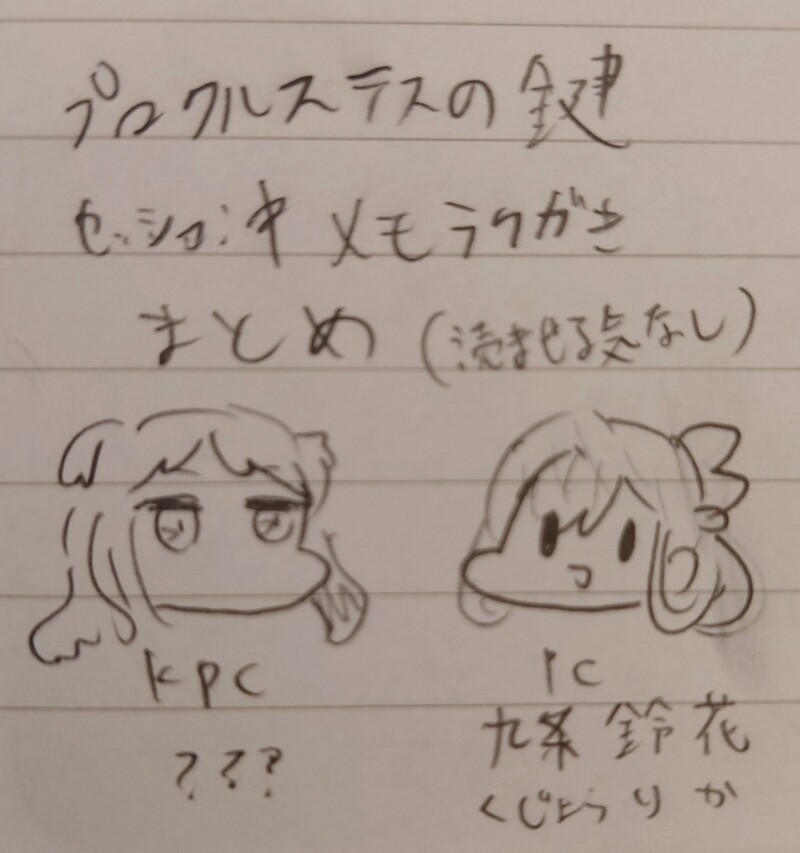 プロクルステスの鍵
セッション中 メモラクガキ
まとめ (読ませる気なし)
KPC
PC
???
九条 鈴花
くじょう りか